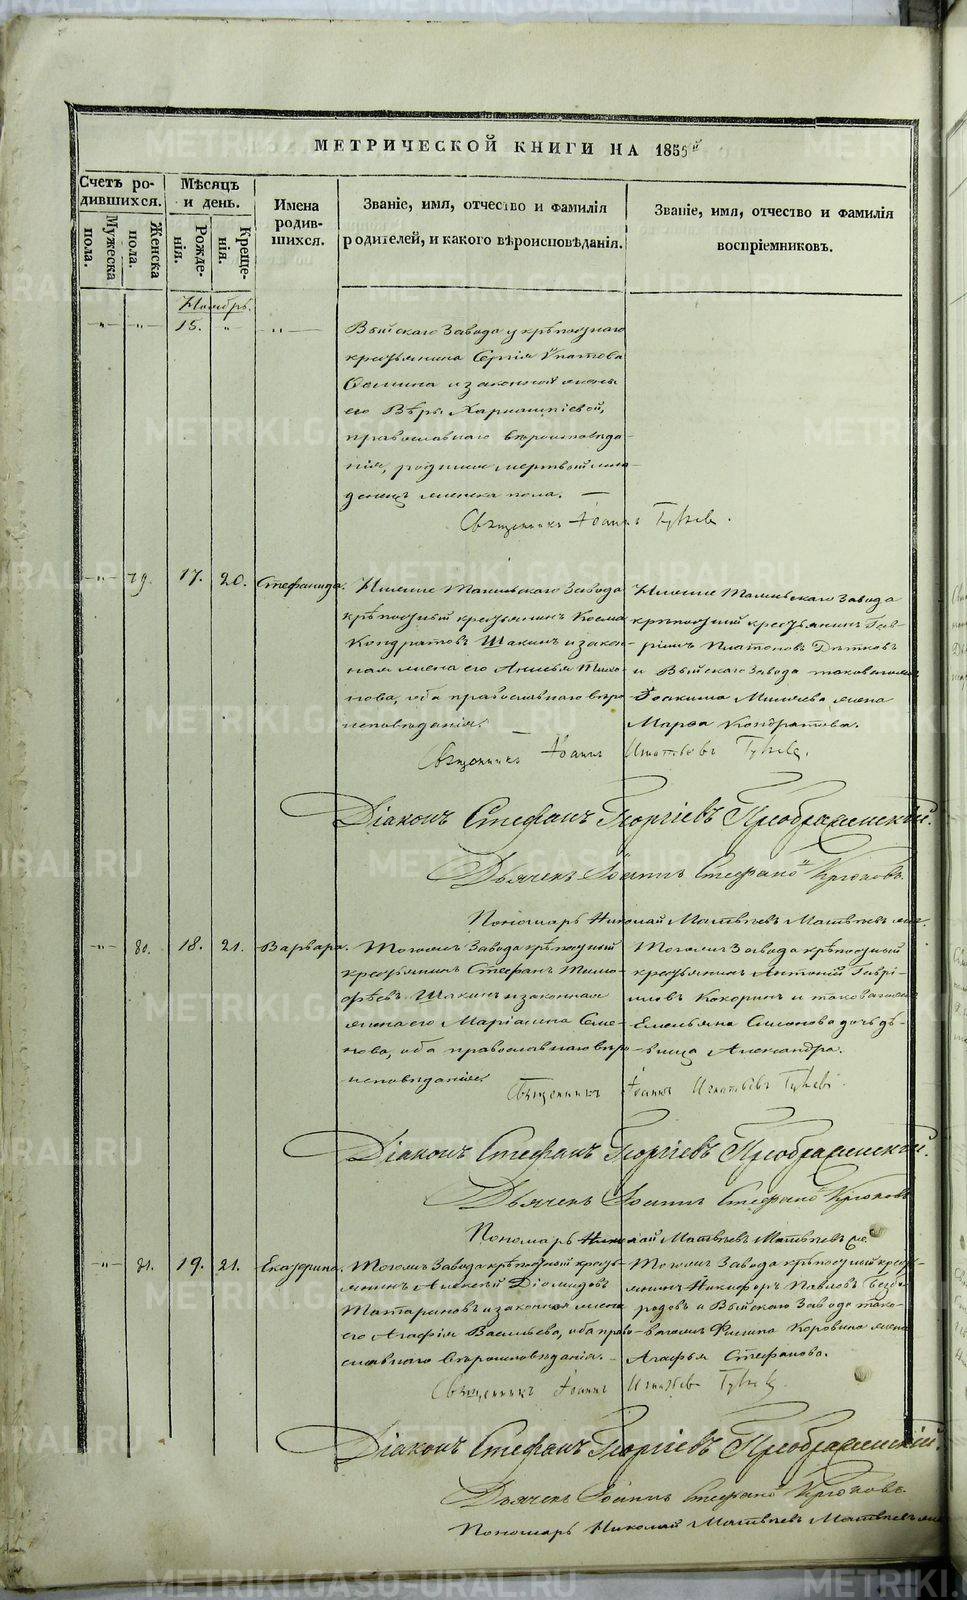 МЕТРИЧЕСКОЙ КНИГИ НА 1855й
Счетъ родившихся.
Мужеска пола.
Женска пола.
Мѣсяцъ и день.
Рожденія.
Крещенія.
Имена родившихся.
Званіе, имя, отчество и фамилія
родителей, и какого вѣроисповѣданія.
Званіе, имя, отчество и фамилія
воспріемниковъ.
Ноябрь.
15.
Выйскаго Завода у крѣпостнаго
крестьянина Сергія
и законной жены
его Вѣры
православнаго вѣроисповѣда-
нія, родился мертвый мла-
денецъ женска пола. —
Священникъ Іоаннъ
79. 17. 20. Стефанида.
Нижне Тагильскаго Завода
крѣпостный крестьянинъ Косма
Кондратовъ Шакинъ и закон-
ная жена его Тихо-
нова, оба православнаго вѣро-
исповѣданія.
Нижне Тагильскаго Завода
крѣпостный крестьянинъ Гав-
ріилъ Платоновъ
и Выйскаго Завода таковагожъ
Іоакима жена
Марѳа Кондратова.
Священникъ Іоаннъ Игнатьевъ
Діаконъ Стефанъ Георгіевъ Преображенскій.
Дьячекъ Іоаннъ Стефановъ Крюковъ
Пономарь Николай Матвѣевъ Матвѣевъ
80. 18. 21. Варвара.
Тогожъ Завода крѣпостный
крестьянинъ Стефанъ Тимо-
фѣевъ Шакинъ и законная
жена его Маріамна Семе-
нова, оба православнаго вѣро-
исповѣданія.
Тогожъ Завода крѣпостный
крестьянинъ Антоній Гаврі-
иловъ Кокоринъ и таковагожъ
Емельяна Симонова дочь дѣ-
вица Александра.
Священникъ Іоаннъ Игнатьевъ
Діаконъ Стефанъ Георгіевъ Преображенскій.
Дьячекъ Іоаннъ Стефановъ Крюковъ
Пономарь Николай Матвѣевъ Матвѣевъ
81. 19. 21. Екатерина.
Тогожъ Завода крѣпостный кресть-
янинъ Алексѣй Діомидовъ
Татариновъ и законная жена
его Агафія Васильева, оба право-
славнаго вѣроисповѣданія.
Тогожъ Завода крѣпостный кресть-
янинъ Никифоръ Павловъ
и Выйскаго Завода тако-
вагожъ Филипа Коровина жена
Агафья Стефанова.
Священникъ Іоаннъ Игнатьевъ
Діаконъ Стефанъ Георгіевъ Преображенскій.
Дьячекъ Іоаннъ Стефановъ Крюковъ
Пономарь Николай Матвѣевъ Матвѣевъ
METRIKI.GASO-URAL.RU